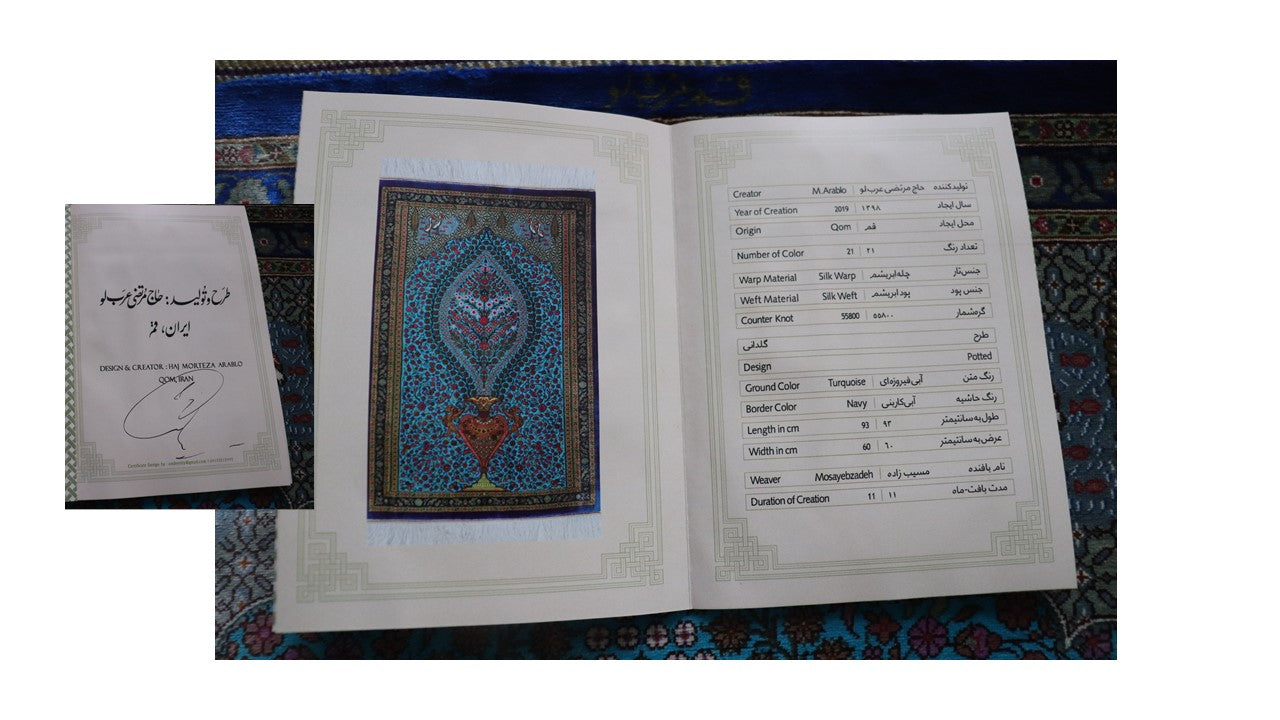 طرح و تولید: حاج مرتضی عرب لو
ایران، قم
DESIGN & CREATOR : HAJ MORTEZA ARABLO
QOM, IRAN
Certificate Design by
Creator M.Arablo حاج مرتضی عرب‌لو تولیدکننده
Year of Creation 2019 ۱۳۹۸ سال ایجاد
Origin Qom قم محل ایجاد
Number of Color 21 ۲۱ تعداد رنگ
Warp Material Silk Warp چله‌ابریشم جنس‌تار
Weft Material Silk Weft پودابریشم جنس پود
Counter Knot 55800 ۵۵۸۰۰ گره‌شمار
گلدانی طرح
Design Potted
Ground Color Turquoise آبی‌فیروزه‌ای رنگ متن
Border Color Navy آبی‌کاربنی رنگ حاشیه
Length in cm 93 ۹۳ طول‌به‌سانتیمتر
Width in cm 60 ۶۰ عرض‌به‌سانتیمتر
Weaver Mosayebzadeh مسیب زاده نام بافنده
Duration of Creation 11 ۱۱ مدت بافت-ماه